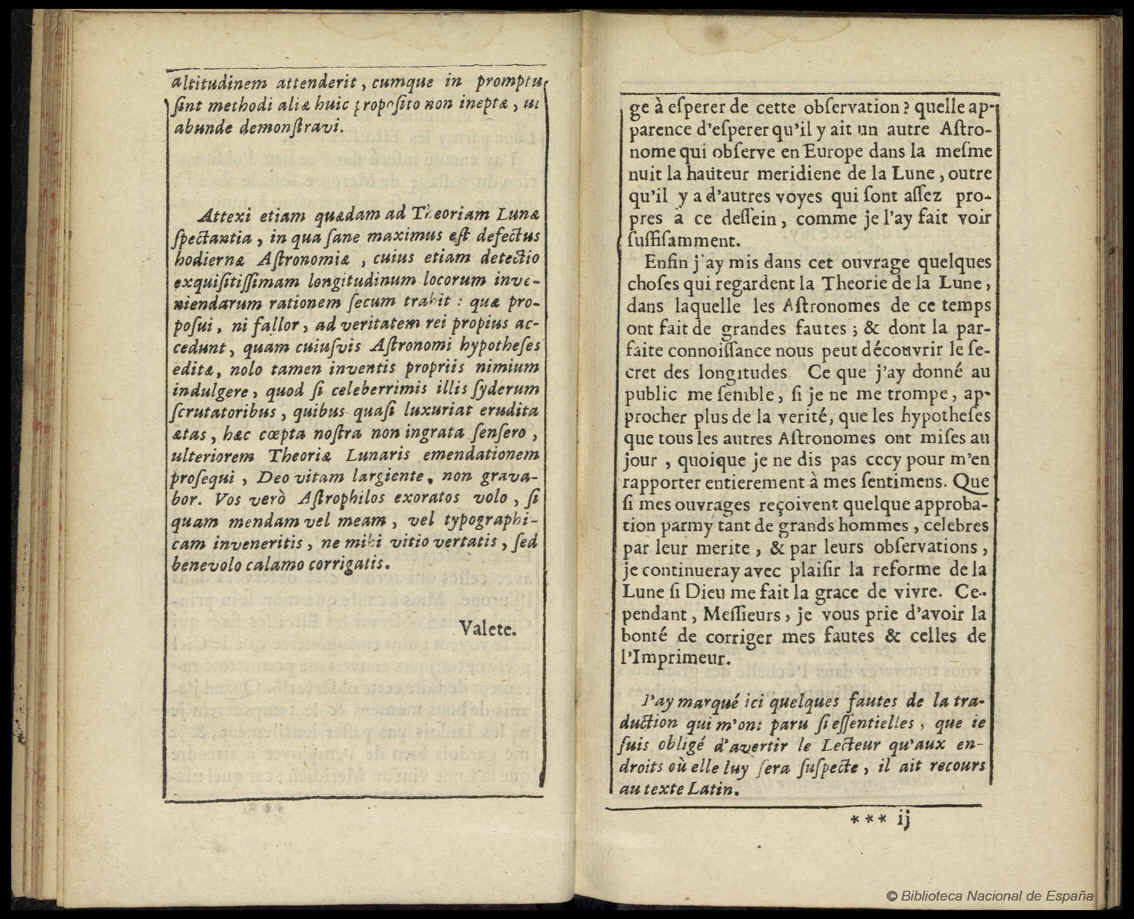 altitudinem attenderit, cumque in promptu
ſint methodi aliæ huic propoſito non ineptæ, ut
abunde demonſtravi.
Attexi etiam quædam ad Theoriam Lunæ
ſpectantia, in qua ſane maximus eſt defectus
hodiernæ Aſtronomiæ, cuius etiam detectio
exquiſitiſſimam longitudinum locorum inve-
niendarum rationem ſecum trahit : quæ pro-
poſui, ni fallor, ad veritatem rei propius ac-
cedunt, quam cuiuſvis Aſtronomi hypotheſes
editæ, nolo tamen inventis propriis nimium
indulgere, quod ſi celeberrimis illis ſyderum
ſcrutatoribus, quibus quaſi luxuriat erudita
ætas, hæc cœpta noſtra non ingrata ſenſero,
ulteriorem Theoriæ Lunaris emendationem
proſequi, Deo vitam largiente, non grava-
bor. Vos verò Aſtrophilos exoratos volo, ſi
quam mendam vel meam, vel typographi-
cam inveneritis, ne mihi vitio vertatis, ſed
benevolo calamo corrigatis.
Valete.
ge à eſperer de cette obſervation ? quelle ap-
parence d'eſperer qu'il y ait un autre Aſtro-
nome qui obſerve en Europe dans la meſme
nuit la hauteur meridiene de la Lune, outre
qu'il y a d'autres voyes qui ſont aſſez pro-
pres à ce deſſein, comme je l'ay fait voir
ſuffiſamment.
Enfin j'ay mis dans cet ouvrage quelques
choſes qui regardent la Theorie de la Lune,
dans laquelle les Aſtronomes de ce temps
ont fait de grandes fautes ; & dont la par-
faite connoiſſance nous peut découvrir le ſe-
cret des longitudes Ce que j'ay donné au
public me ſemble, ſi je ne me trompe, ap-
procher plus de la verité, que les hypotheſes
que tous les autres Aſtronomes ont miſes au
jour, quoique je ne dis pas cecy pour m'en
rapporter entierement à mes ſentimens. Que
ſi mes ouvrages reçoivent quelque approba-
tion parmy tant de grands hommes, celebres
par leur merite, & par leurs obſervations,
je continueray avec plaiſir la reforme de la
Lune ſi Dieu me fait la grace de vivre. Ce-
pendant, Meſſieurs, je vous prie d'avoir la
bonté de corriger mes fautes & celles de
l'Imprimeur.
I'ay marqué ici quelques fautes de la tra-
duction qui m'ont paru ſi eſſentielles, que ie
ſuis obligé d'avertir le Lecteur qu'aux en-
droits où elle luy ſera ſuſpecte, il ait recours
au texte Latin.
*** ij
© Biblioteca Nacional de España